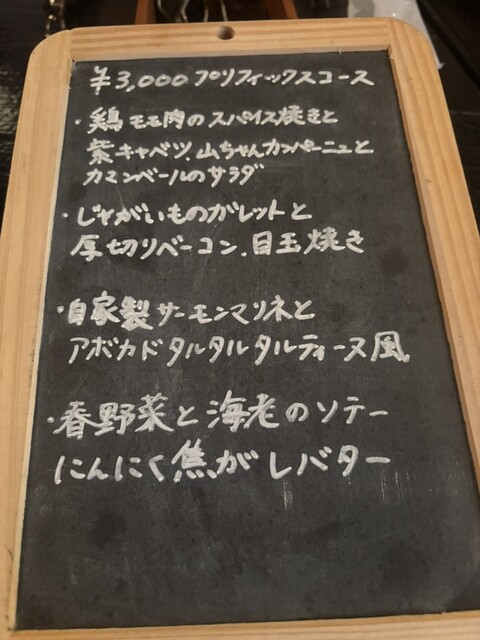 ¥3,000 プリフィックスコース
・鶏モモ肉のスパイス焼きと
紫キャベツ、山ちゃんカンパーニュと
カマンベールのサラダ
・じゃがいものガレットと
厚切りベーコン、目玉焼き
・自家製サーモンマリネと
アボカドタルタルタルティーヌ風
・春野菜と海老のソテー
にんにく焦がしバター